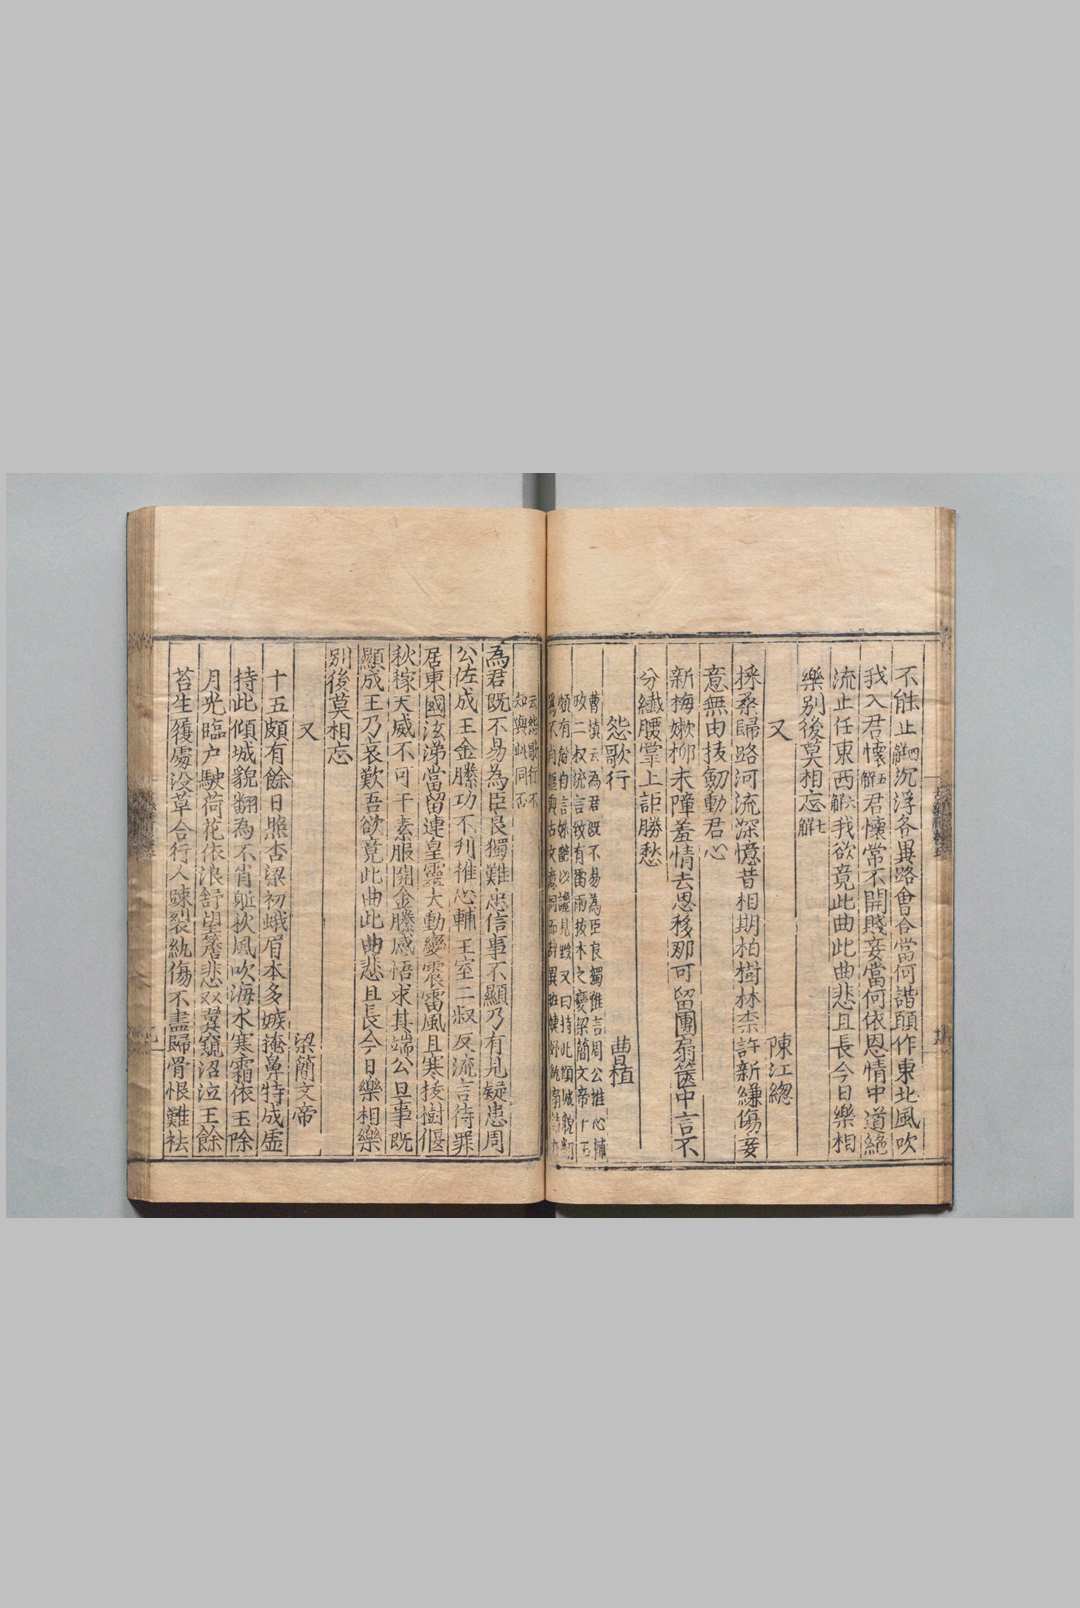 不能止四解沉浮各異路會合當何諧願作東北風吹
我入君懷五解君懷常不開賤妾當何依恩情中道絕
流止任東西六解我欲竟此曲此曲悲且長今日樂相
樂別後莫相忘七解
又 陳江緫
採桑歸路河流深憶昔相期柏樹林柰許新縑傷妾
意無由故劒動君心
新梅嫩柳未障羞情去恩移那可留團扇篋中言不
分纖腰掌上詎勝愁
怨歌行 曹植
曹植云為君既不易為臣良獨難言周公推心輔
政二叔流言致有雷雨拔木之變梁簡文帝十五
頗有餘自言姝艷以讒見毀又曰持此傾城貌翻
為不肖軀與古文意同而
云怨歌行不
知與此同否
為君既不易為臣良獨難忠信事不顯乃有見疑患周
公佐成王金縢功不刋推心輔王室二叔反流言待罪
居東國泫涕當留連皇靈大動變震雷風且寒拔樹偃
秋稼天威不可干素服開金縢感悟求其端公旦事既
顯成王乃哀歎吾欲竟此曲此曲悲且長今日樂相樂
別後莫相忘
又 梁簡文帝
十五頗有餘日照杏梁初蛾眉本多嫉掩鼻特成虛
持此傾城貌翻為不肖軀秋風吹海水寒霜依玉除
月光臨户駛荷花依浪舒望簷悲雙翼窺沼泣王餘
苔生履處没草合行人疎裂紈傷不盡歸骨恨難袪